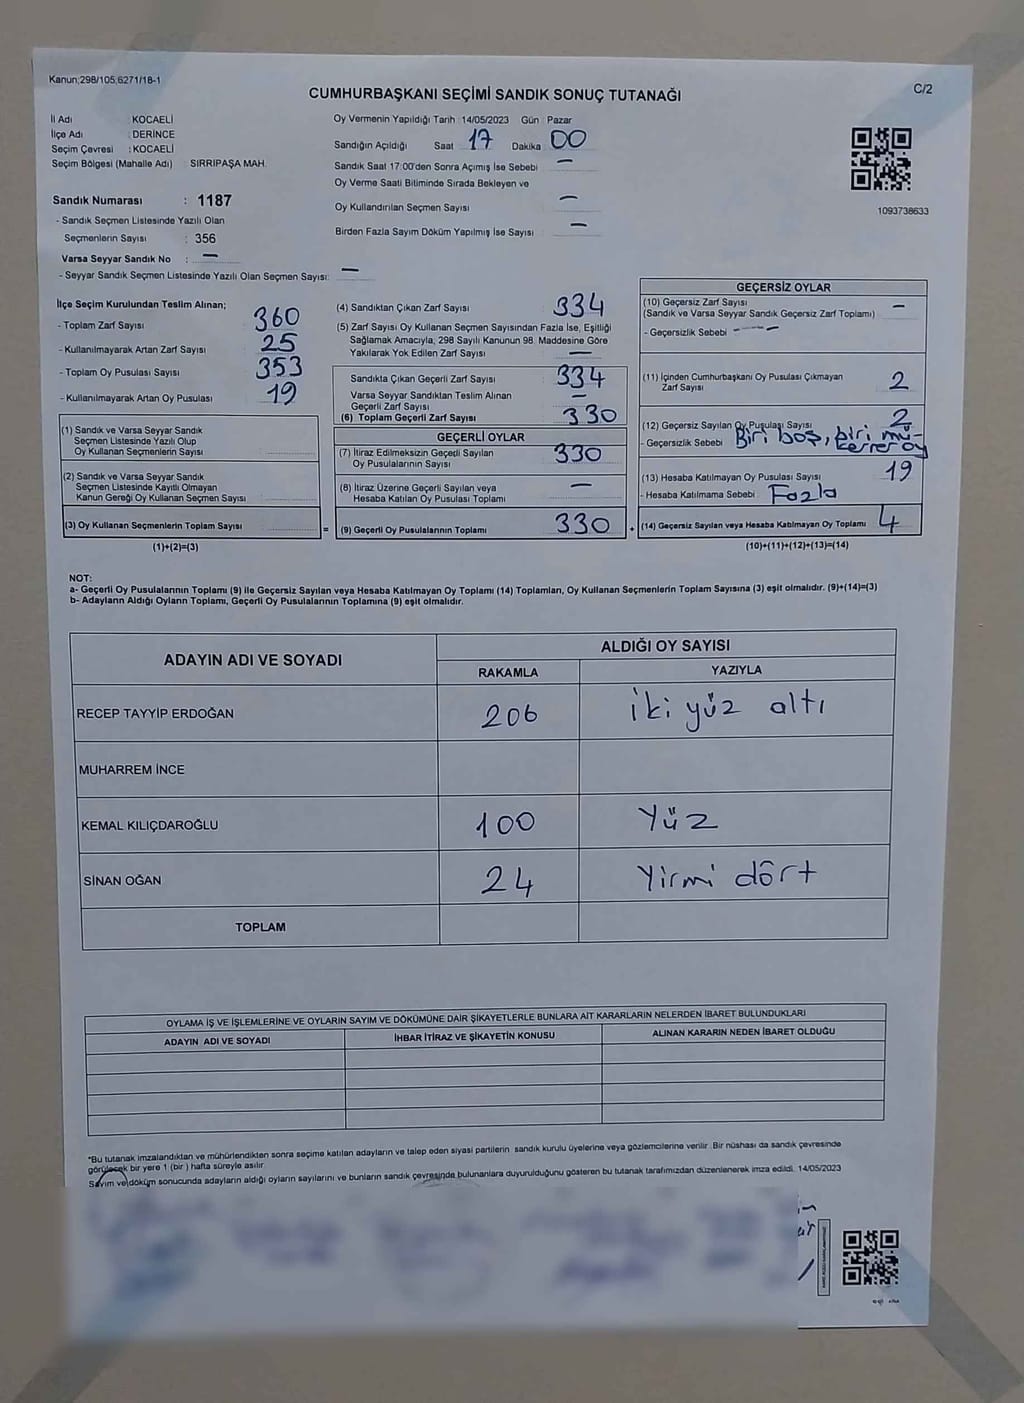 Kanun;298/105,6271/18-1
CUMHURBAŞKANI SEÇİMİ SANDIK SONUÇ TUTANAĞI
C/2
İl Adı : KOCAELİ
İlçe Adı : DERİNCE
Seçim Çevresi : KOCAELİ
Seçim Bölgesi (Mahalle Adı) : SIRRIPAŞA MAH.
Oy Vermenin Yapıldığı Tarih 14/05/2023 Gün Pazar
Sandığın Açıldığı Saat 17 Dakika 00
Sandık Saat 17:00'den Sonra Açılmış İse Sebebi —
Oy Verme Saati Bitiminde Sırada Bekleyen ve
Oy Kullandırılan Seçmen Sayısı —
Birden Fazla Sayım Döküm Yapılmış İse Sayısı —
1093738633
Sandık Numarası : 1187
- Sandık Seçmen Listesinde Yazılı Olan
Seçmenlerin Sayısı : 356
Varsa Seyyar Sandık No : —
- Seyyar Sandık Seçmen Listesinde Yazılı Olan Seçmen Sayısı: —
İlçe Seçim Kurulundan Teslim Alınan;
- Toplam Zarf Sayısı 360
- Kullanılmayarak Artan Zarf Sayısı 25
- Toplam Oy Pusulası Sayısı 353
- Kullanılmayarak Artan Oy Pusulası 19
(1) Sandık ve Varsa Seyyar Sandık
Seçmen Listesinde Yazılı Olup
Oy Kullanan Seçmenlerin Sayısı
(2) Sandık ve Varsa Seyyar Sandık
Seçmen Listesinde Kayıtlı Olmayan
Kanun Gereği Oy Kullanan Seçmen Sayısı
(3) Oy Kullanan Seçmenlerin Toplam Sayısı =
(1)+(2)=(3)
(4) Sandıktan Çıkan Zarf Sayısı 334
(5) Zarf Sayısı Oy Kullanan Seçmen Sayısından Fazla İse, Eşitliği
Sağlamak Amacıyla, 298 Sayılı Kanunun 98. Maddesine Göre
Yakılarak Yok Edilen Zarf Sayısı —
Sandıkta Çıkan Geçerli Zarf Sayısı 334
Varsa Seyyar Sandıktan Teslim Alınan
Geçerli Zarf Sayısı —
(6) Toplam Geçerli Zarf Sayısı 330
GEÇERLİ OYLAR
(7) İtiraz Edilmeksizin Geçerli Sayılan
Oy Pusulalarının Sayısı 330
(8) İtiraz Üzerine Geçerli Sayılan veya
Hesaba Katılan Oy Pusulası Toplamı —
(9) Geçerli Oy Pusulalarının Toplamı 330 +
GEÇERSİZ OYLAR
(10) Geçersiz Zarf Sayısı
(Sandık ve Varsa Seyyar Sandık Geçersiz Zarf Toplamı) —
- Geçersizlik Sebebi ----
(11) İçinden Cumhurbaşkanı Oy Pusulası Çıkmayan
Zarf Sayısı 2
(12) Geçersiz Sayılan Oy Pusulası Sayısı 2
- Geçersizlik Sebebi Biri boş, biri mü-
kerrer oy
(13) Hesaba Katılmayan Oy Pusulası Sayısı 19
- Hesaba Katılmama Sebebi Fazla
(14) Geçersiz Sayılan veya Hesaba Katılmayan Oy Toplamı 4
(10)+(11)+(12)+(13)=(14)
NOT:
a- Geçerli Oy Pusulalarının Toplamı (9) ile Geçersiz Sayılan veya Hesaba Katılmayan Oy Toplamı (14) Toplamları, Oy Kullanan Seçmenlerin Toplam Sayısına (3) eşit olmalıdır. (9)+(14)=(3)
b- Adayların Aldığı Oyların Toplamı, Geçerli Oy Pusulalarının Toplamına (9) eşit olmalıdır.
ADAYIN ADI VE SOYADI
ALDIĞI OY SAYISI
RAKAMLA YAZIYLA
RECEP TAYYİP ERDOĞAN 206 iki yüz altı
MUHARREM İNCE
KEMAL KILIÇDAROĞLU 100 Yüz
SİNAN OĞAN 24 Yirmi dört
TOPLAM
OYLAMA İŞ VE İŞLEMLERİNE VE OYLARIN SAYIM VE DÖKÜMÜNE DAİR ŞİKAYETLERLE BUNLARA AİT KARARLARIN NELERDEN İBARET BULUNDUKLARI
ADAYIN ADI VE SOYADI İHBAR İTİRAZ VE ŞİKAYETİN KONUSU ALINAN KARARIN NEDEN İBARET OLDUĞU
*Bu tutanak imzalandıktan ve mühürlendikten sonra seçime katılan adayların ve talep eden siyasi partilerin sandık kurulu üyelerine veya gözlemcilerine verilir. Bir nüshası da sandık çevresinde
görülecek bir yere 1 (bir) hafta süreyle asılır.
Sayım ve döküm sonucunda adayların aldığı oyların sayılarını ve bunların sandık çevresinde bulunanlara duyurulduğunu gösteren bu tutanak tarafımızdan düzenlenerek imza edildi. 14/05/2023